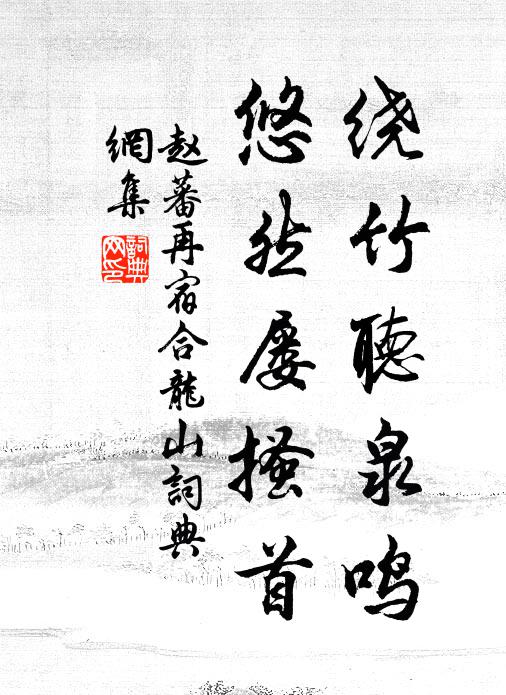 绕竹聽泉鸣
悠然屡搔首
赵蕃再宿合龍山詞典
網集
詞典
网印